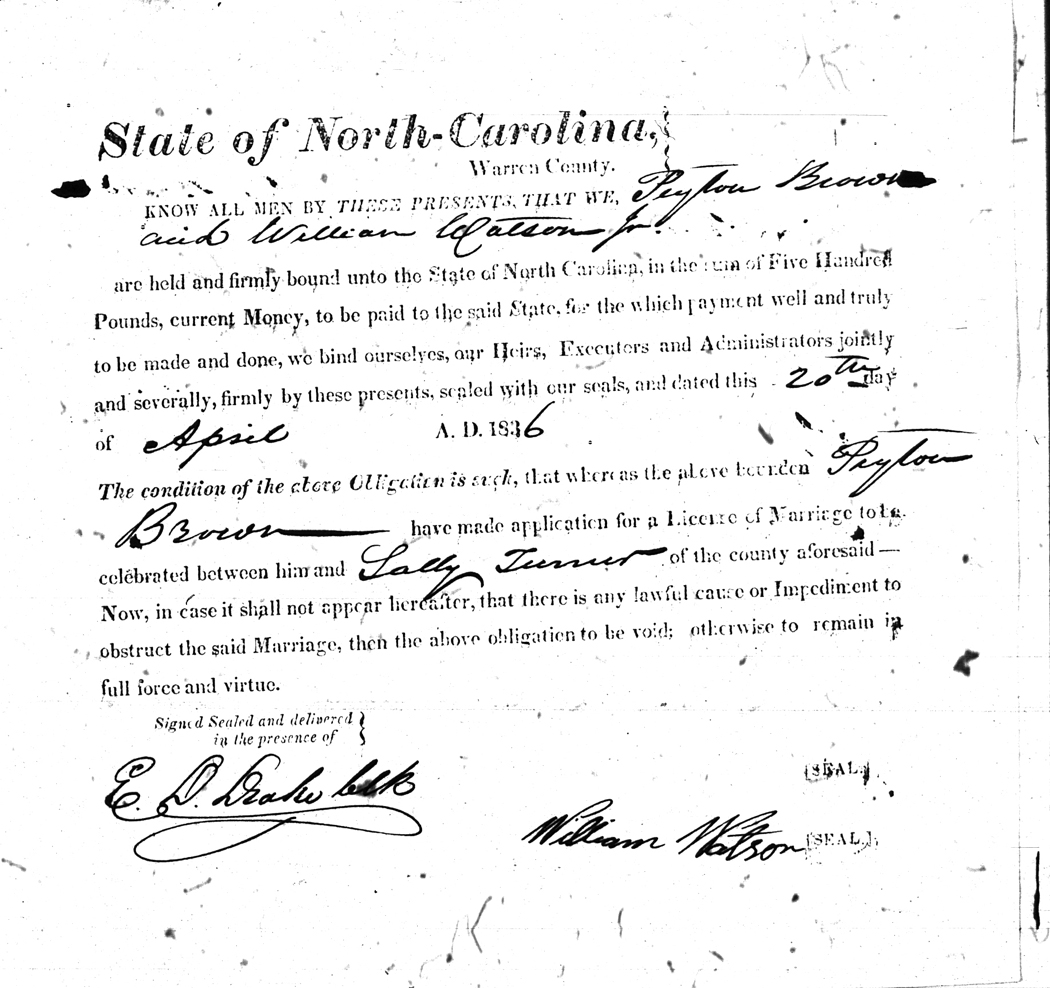 State of North-Carolina,
Warren County.
KNOW ALL MEN BY THESE PRESENTS, THAT WE, Peyton Brown
and William Watson Jr.
are held and firmly bound unto the State of North Carolina, in the sum of Five Hundred
Pounds, current Money, to be paid to the said State, for the which payment well and truly
to be made and done, we bind ourselves, our Heirs, Executors and Administrators jointly
and severally, firmly by these presents, sealed with our seals, and dated this 20th day
of April A. D. 1836
The condition of the above Obligation is such, that whereas the above bounden Peyton
Brown have made application for a License of Marriage to be
celebrated between him and Sally Turner of the county aforesaid—
Now, in case it shall not appear hereafter, that there is any lawful cause or Impediment to
obstruct the said Marriage, then the above obligation to be void; otherwise to remain in
full force and virtue.
Signed Sealed and delivered
in the presence of
E. D. Drake clk
[SEAL.]
William Watson [SEAL.]